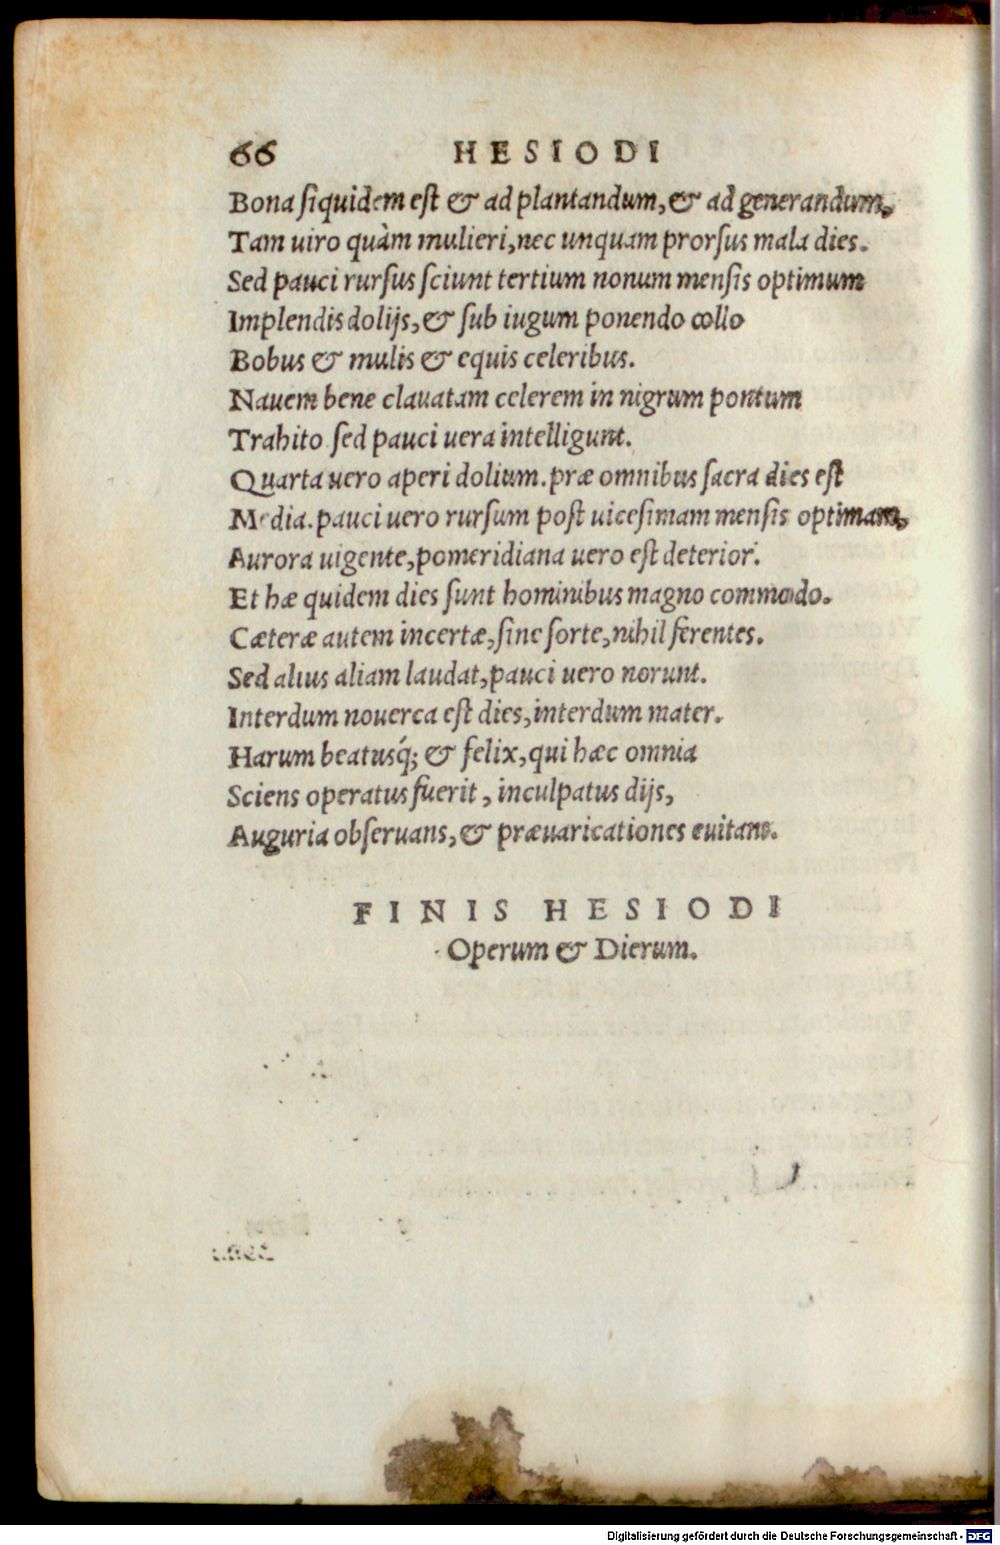 66 HESIODI
Bona siquidem est & ad plantandum, & ad generandum,
Tam uiro quàm mulieri, nec unquam prorsus mala dies.
Sed pauci rursus sciunt tertium nonum mensis optimum
Implendis dolijs, & sub iugum ponendo collo
Bobus & mulis & equis celeribus.
Nauem bene clauatam celerem in nigrum pontum
Trahito sed pauci uera intelligunt.
Quarta uero aperi dolium. præ omnibus sacra dies est
Media. pauci uero rursum post uicesimam mensis optimam,
Aurora uigente, pomeridiana uero est deterior.
Et hæ quidem dies sunt hominibus magno commodo.
Cæteræ autem incertæ, sine sorte, nihil ferentes.
Sed alius aliam laudat, pauci uero norunt.
Interdum nouerca est dies, interdum mater.
Harum beatusq́; & felix, qui hæc omnia
Sciens operatus fuerit, inculpatus dijs,
Auguria obseruans, & præuaricationes euitans.
FINIS HESIODI
Operum & Dierum.
Digitalisierung gefördert durch die Deutsche Forschungsgemeinschaft - DFG